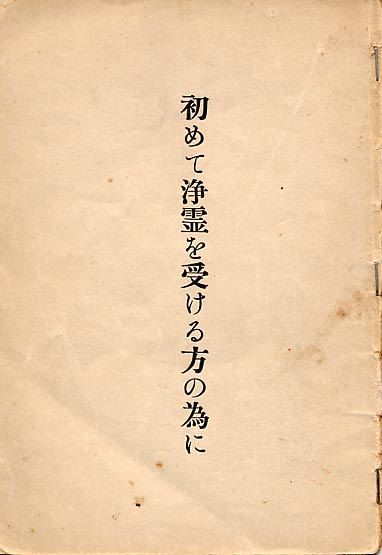 初めて浄霊を受ける方の為に